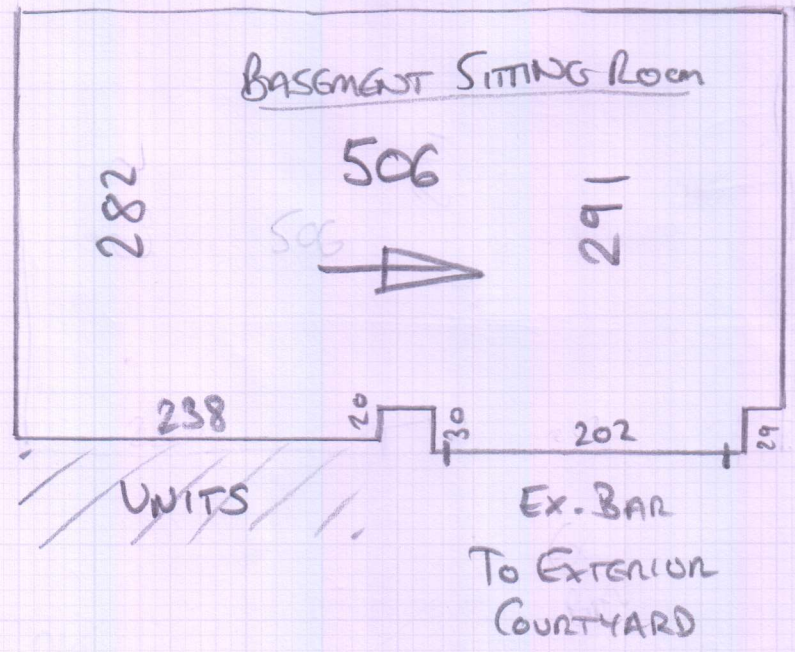 BASEMENT SITTING ROOM
506
282
506
291
238
20
30
202
29
UNITS
EX. BAR
TO EXTERIOR
COURTYARD